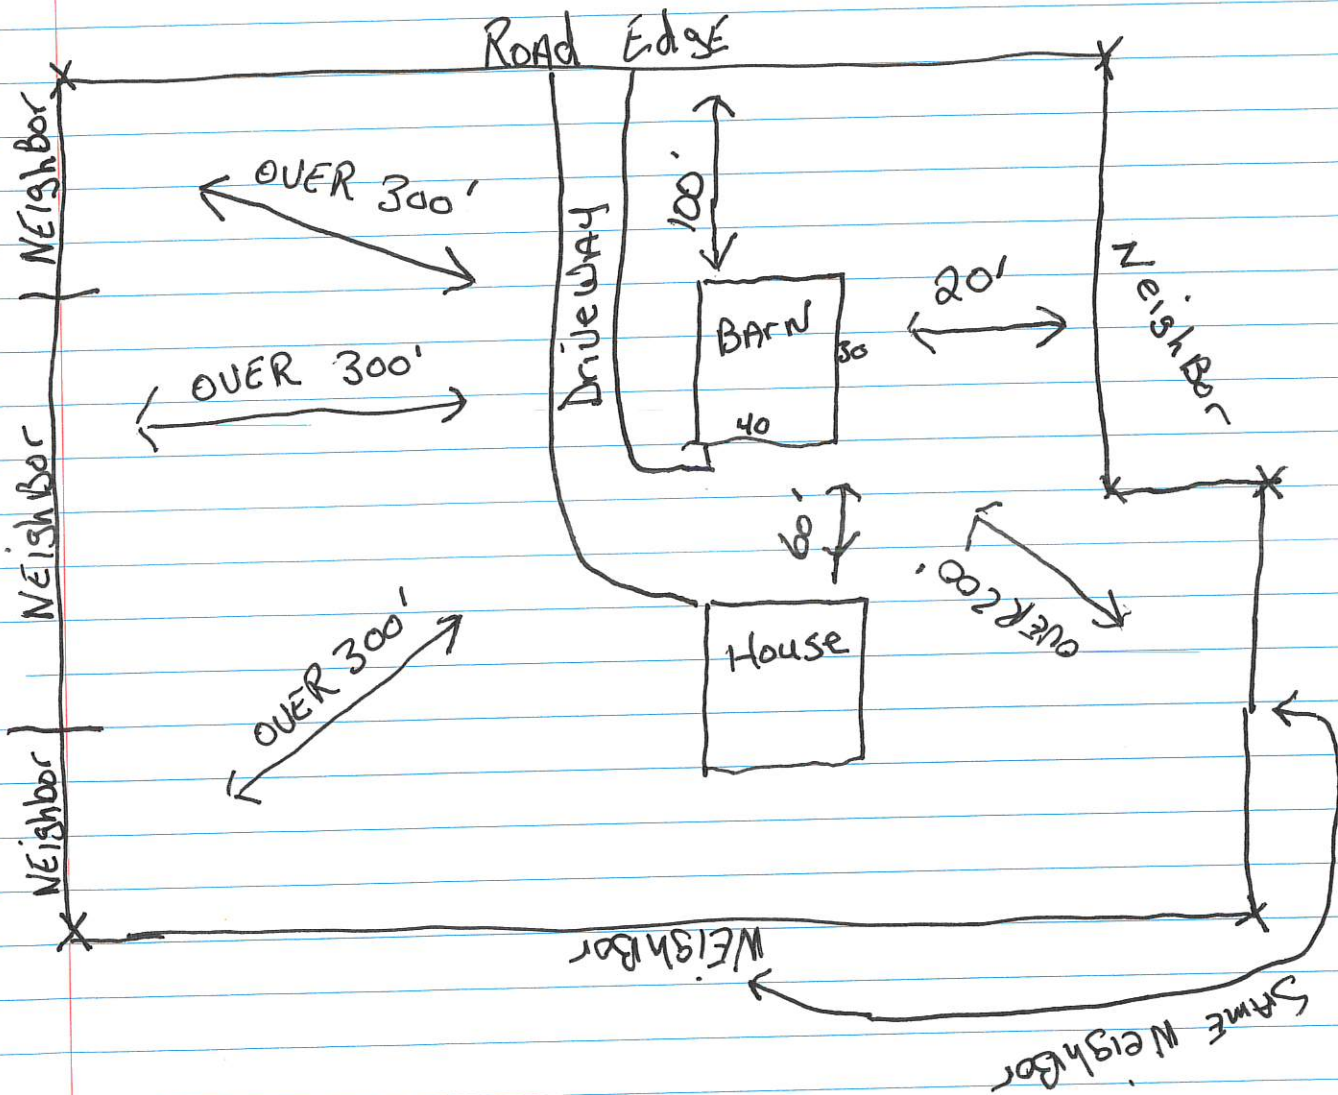 Road Edge
NEighBor
OVER 300'
100'
DriveWAY
BArN
30
40
20'
NeighBor
OVER 300'
NEighBor
60'
OVER 200'
House
OVER 300'
NEighbor
NEighBor
SAmE NeighBor